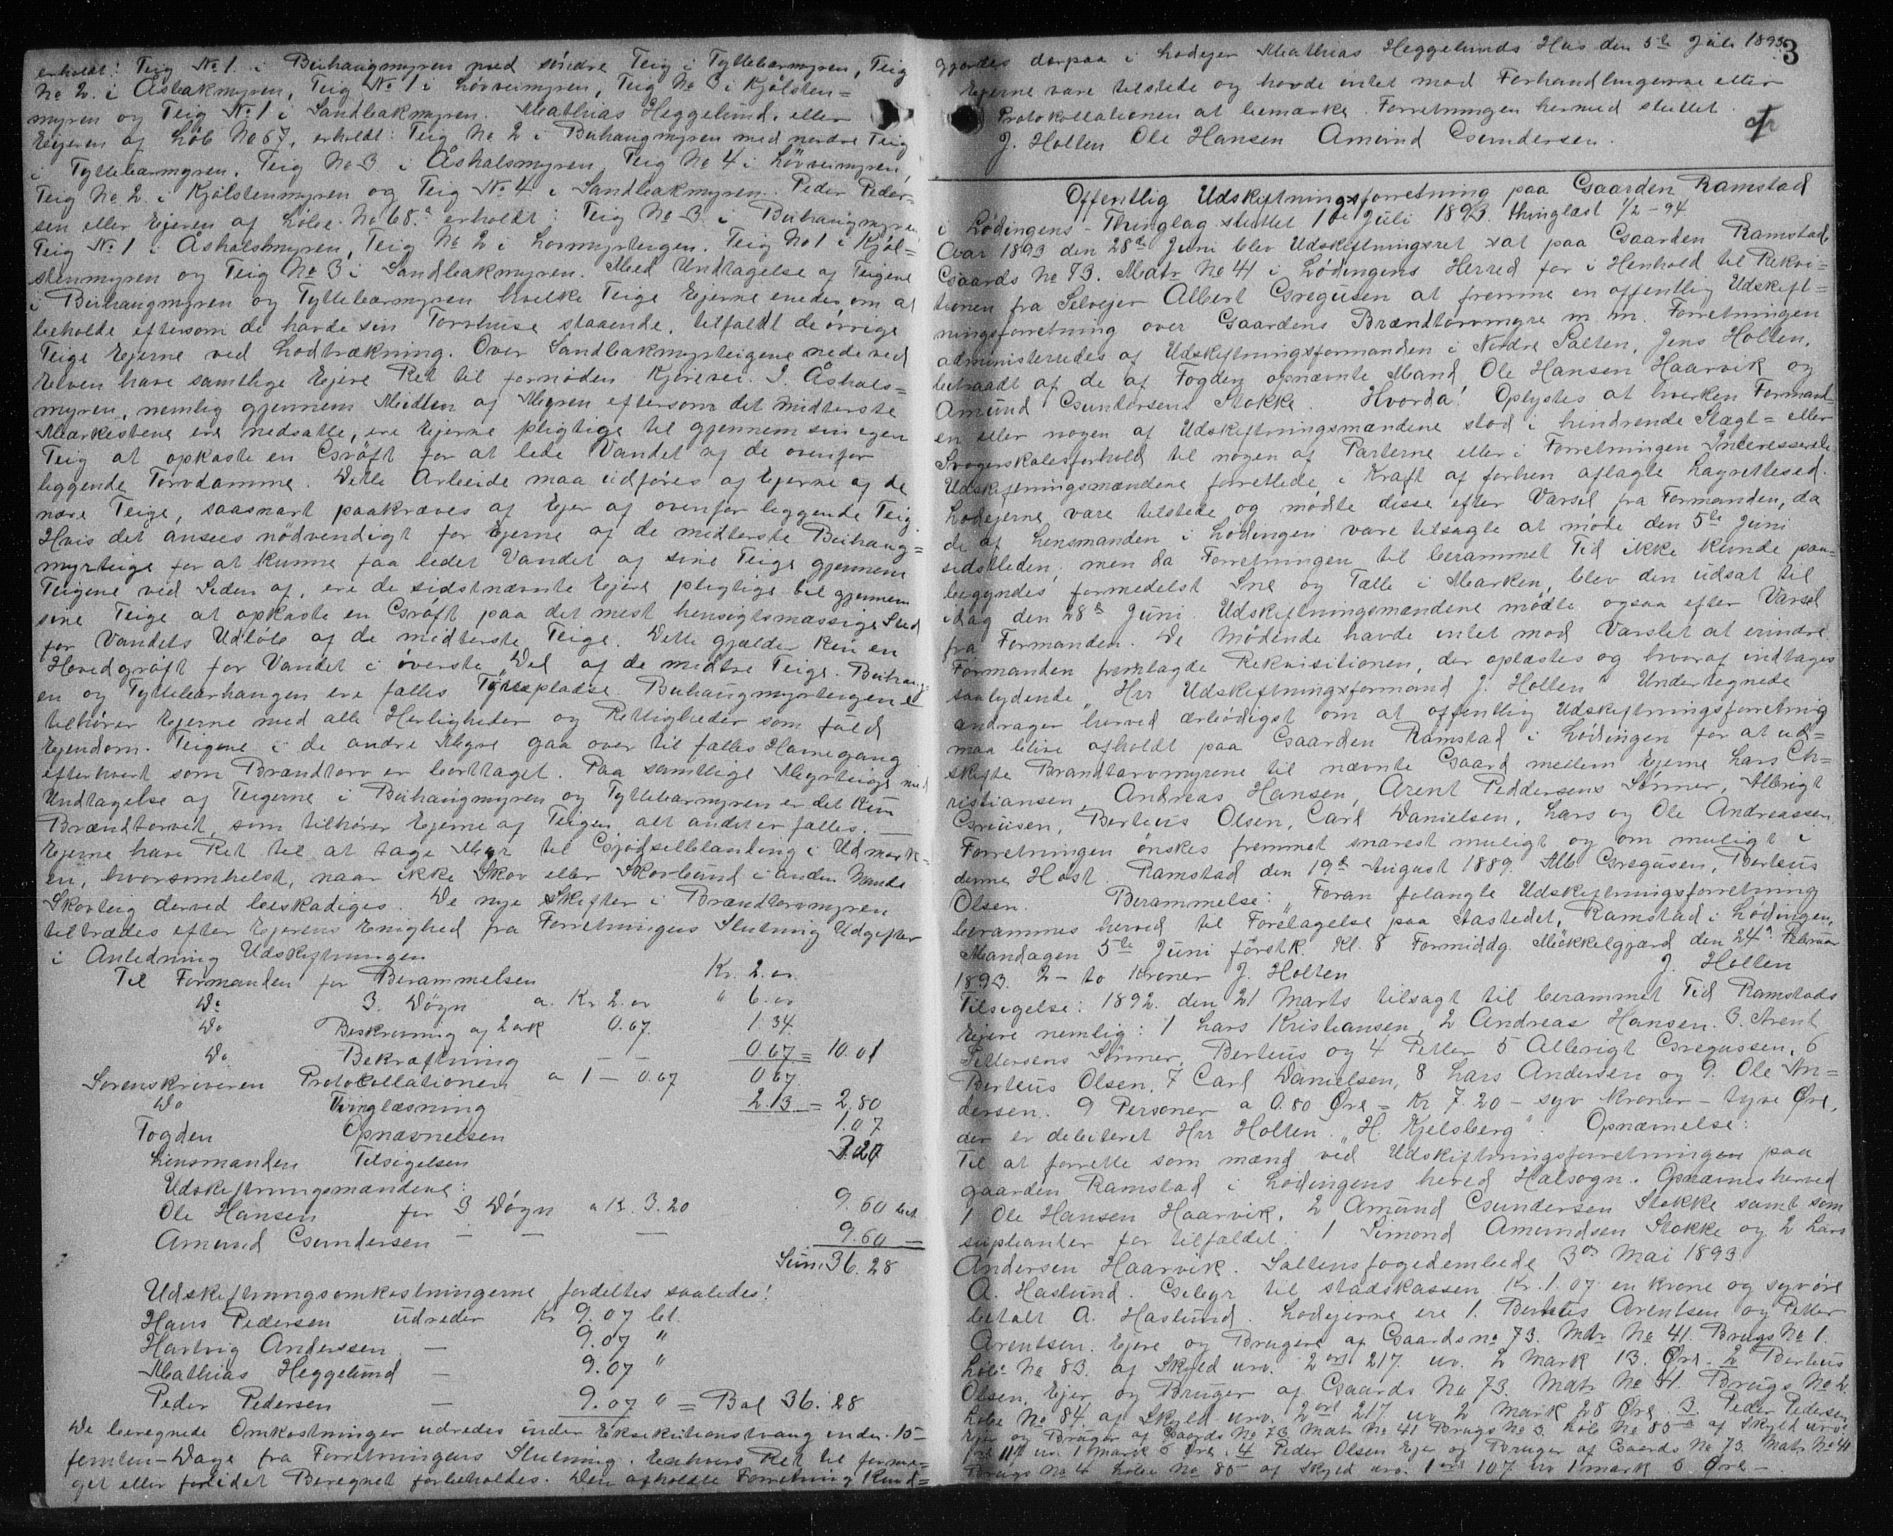 erholdt: Teig No 1. i Buhaugmyren med søndre Teig i Tyttebærmyren, Teig
No 2. i Åsbakmyren, Teig No 1 i Løvveimyren, Teig No 3 i Kjølsten=
myren og Teig No 1 i Sandbakmyren. Mathias Heggelund. eller
Ejeren af Løb No 67, erholdt: Teig No 2 i Buhaugmyren med nordre Teig
i Tyttebærmyren, Teig No 3 i Åshalsmyren, Teig No 4 i Løvveimyren,
Teig No. 2. i Kjølstenmyren og Teig No 4 i Sandbakmyren. Peder Peder-
sen eller Ejeren af Løbe No 68.a erholdt: Teig No 3. i Buhaugmyren
Teig No 1 i Åshalsmyren, Teig No 2 i Teig No 1 i Kjøl-
stenmyren og Teig No 3 i Sandbakmyren. Med Undtagelse af Teigene
i Buhaugmyren og Tyttebærmyren hvilke Teige Ejerne enedes om at
beholde eftersom de havde sin Torvhuse staaende, tilfaldt de øvrige
Teige Ejerne ved Lodtrækning. Over Sandbakmyrteigene nede ved
Elven have samtlige Ejere Ret til fornøden Kjørevei. I. Åshals=
myren, nemlig gjennem Midten af Myren eftersom det midterste
Markestene ere nedsatte, ere Ejerne pligtige til gjennem sin egen
Teig at opkaste en Grøft for at lede Vandet af de ovenfor
liggende Torvdamme. Dette Arbeide maa udføres af Ejerne af de
nære Teige, saasnart paakræves af Ejer af ovenfor liggende Teig.
Hvis det ansees nødvendigt for Ejerne af de midterste Buhaug=
myrteige for at kunne faa ledet Vandet af sine Teige gjennem
Teigene ved Siden af, ere de sidstnævnte Ejere pligtige til gjennem
sine Teige at opkaste en Grøft paa det mest hensigtsmæssige Sted
for Vandets Udløb af de midterste Teige. Dette gjælder kun en
Hovedgrøft for Vandet i øverste Del af de midtre Teige. Buhaug-
en og Tyttebærhaugen ere fælles Tørkepladse. Buhaugmyrteigene
tilhører Ejerne med alle Herligheder og Rettigheder som fuld
Ejendom. Teigene i de andre Myre gaa over til fælles Havnegang
efterhvert som Brændtorv er borttaget. Paa samtlige Myrteige med
Undtagelse af Teigerne i Buhaugmyren og Tyttebærmyren er det kun
Brændtorvet, som tilhører Ejerne af Teigen alt andet er fælles. —
Ejerne have Ret til at tage Myr til Gjødselblanding i Udmark-
en, hvorsomhelst, naar ikke Skov eller Skovbund i anden Mands
Skovteig derved beskadiges. De nye Skifter i Brændtorvmyren
tiltrædes efter Ejerens Enighed fra Forretningens Slutning Udgifter
i Anledning Udskiftningen
Til Formanden for Berammelsen Kr. 2. or.
Do 3. Døgn a. Kr 2. or " 6. or
Do Beskrivning af 2 ark 0.67. 1.34.
Do Bekræftning — — 0.67 = 10.01
Sorenskriveren Protokollationen a 1 — 0.67 0.67.
Do Thinglæsning 2.13 = 2,80
Fogden Opnævnelsen 1.07
Lensmanden Tilsigelsen 3.20
Udskiftningsmændene:
Ole Hansen for 3 Døgn a Kr. 3.20 9.60 bet.
Amund Gundersen — — — 9.60 —
Sum. 36.28
Udskiftningsomkostningerne fordeltes saaledes:
Hans Pedersen udreder Kr 9.07 bt.
Hartvig Anderssen — 9.07 "
Mathias Heggelund — 9.07 "
Peder Pedersen — 9.07 " = Bal 36.28
De beregnede Omkostninger udredes under Eksekutionstvang inden 15 —
femten — Dage fra Forretningens Slutning. Enhvers Ret til forme-
get eller forlidet Beregnet forbeholdes. Den afholdte Forretning Kund=
3
gjordes derpaa i Lodejer Mathias Heggelunds Hus den 5te Juli 1893.
Ejerne vare tilstede og havde intet mod Forhandlingerne eller
Protokollationen at bemærke. Forretningen hermed sluttet.
J. Holten Ole Hansen Amund Gundersen.
Offentlig Udskiftningsforretning paa Gaarden Ramstad
i Lødingens Thinglag sluttet 1te Juli 1893. thinglæst 1/2 – 94
Aar 1893 den 28de Juni blev Udskiftningsret sat paa Gaarden Ramstad
Gaards No 73. Matr No 41 i Lødingens Herred for i Henhold til Rekvi=
tionen fra Selvejer Albert Gregusen at fremme en offentlig Udskift=
ningsforretning over Gaardens Brændtorvmyre m. m. Forretningen
administreredes af Udskiftningsformanden i Nordre Salten, Jens Holten,
bitraadt af de af Fogden opnævnte Mænd Ole Hansen Haarvik og
Amund Gundersens Stokke. Hvorda! Oplystes at hverken Formand-
en eller nogen af Udskiftningsmændene stod i hindrende Slægt= eller
Svogerskabsforhold til nogen af Parterne eller i Forretningen Interesserede
Udskiftningsmændene forrettede i Kraft af forhen aflagte Lagrettesed.
Lodejerne vare tilstede og mødte disse efter Varsel fra Formanden, da
de af Lensmanden i Lødingen vare tilsagte at møde den 5te Juni
sidstleden, men da Forretningen til berammet Tid ikke kunde paa-
begyndes formedelst Sne og Tælle i Marken, blev den udsat til
idag den 28de Juni Udskiftningsmændene mødte ogsaa efter Varsel
fra Formanden. De Mødende havde intet mod Varslet at erindre.
Formanden fremlagde Rekvisitionen, der oplæstes og hvoraf indtages
saalydende „Hrr Udskiftningsformand J. Holten" Undertegnede
andrager herved ærbødigst om at offentlig Udskiftningsforretning
maa blive afholdt paa Gaarden Ramstad i Lødingen for at ud=
skifte Brændtorvmyrene til nævnte Gaard mellem Ejerne Lars Ch-
ristiansen, Andreas Hansen, Arent Peddersens Sønner, Albrigt
Gregusen, Berteus Olsen, Carl Danielsen, Lars og Ole Andreassen
Forretningen ønskes fremmet snarest muligt og om muligt i
denne Høst. Ramstad den 19de August 1889. Alb Gregusen, Berteus
Olsen. Berammelse: „Foran forlangte Udskiftningsforretning
berammes herved til Foretagelse paa Aastedet, Ramstad i Lødingen,
Mandagen 5te Juni førstk. kl. 8 Formiddg Møkkelgjærd den 24de Februar
1893. 2 — to Kroner J. Holten J. Holten
Tilsigelse: 1892. den 21 Marts tilsagt til berammet Tid Ramstads
Ejere nemlig: 1 Lars Kristiansen, 2 Andreas Hansen. 3. Arent
Pettersens Sønner, Berteus og 4 Petter 5 Albrigt Gregussen, 6
Berteus Olsen, 7 Carl Danielsen, 8 Lars Andersen og 9. Ole An-
dersen. 9 Personer a 0.80 Øre = Kr 7.20 – syv Kroner – tyve Øre,
der er debiteret Hrr Holten. „H. Kjelsberg" Opnævnelse:
Til at forrette som mænd ved Udskiftningsforretningen paa
gaarden Ramstad i Lødingens hered Halsogn. Opnævnes herved
1 Ole Hansen Haarvik, 2 Amund Gundersen Stokke samt som
suplianter for tilfældet: 1 Simond Amundsen Stokke og 2 Lars
Andersen Haarvik. Saltens fogedembede 3die Mai 1893
A. Haslund. Gebyr til statskassen Kr. 1.07 en krone og syv øre
betalt A. Haslund. Lodejerne ere 1. Berteus Arentsen og Petter
Arentsen. Ejere og Brugere af Gaards no 73. Mtr No 41. Brugs No 1.
Løbe No 83. af Skyld urv. 2 ort 217. uv. 2 Mark 13. Øre. 2 Berteus
Olsen, Ejer og Bruger af Gaards No 73. Matr No 41. Brugs No 2.
Løbe No 84. af Skyld urv. 2 ort 217 uv 2 mark 28 Øre. 3. Peder Pedersen
Ejer og Bruger af Gaards No 73 Matr No 41 Brugs No 3. Løb No 85a af Skyld urv.
1 ort 11 uv. 1 mark 6 Øre. 4 Peder Olsen Ejer og Bruger af Gaards No 73. Matr No 41
Brugs No 4 Løbe No 85 af Skyld urv. 1 ort 107 uv 1 mark 6 Øre —